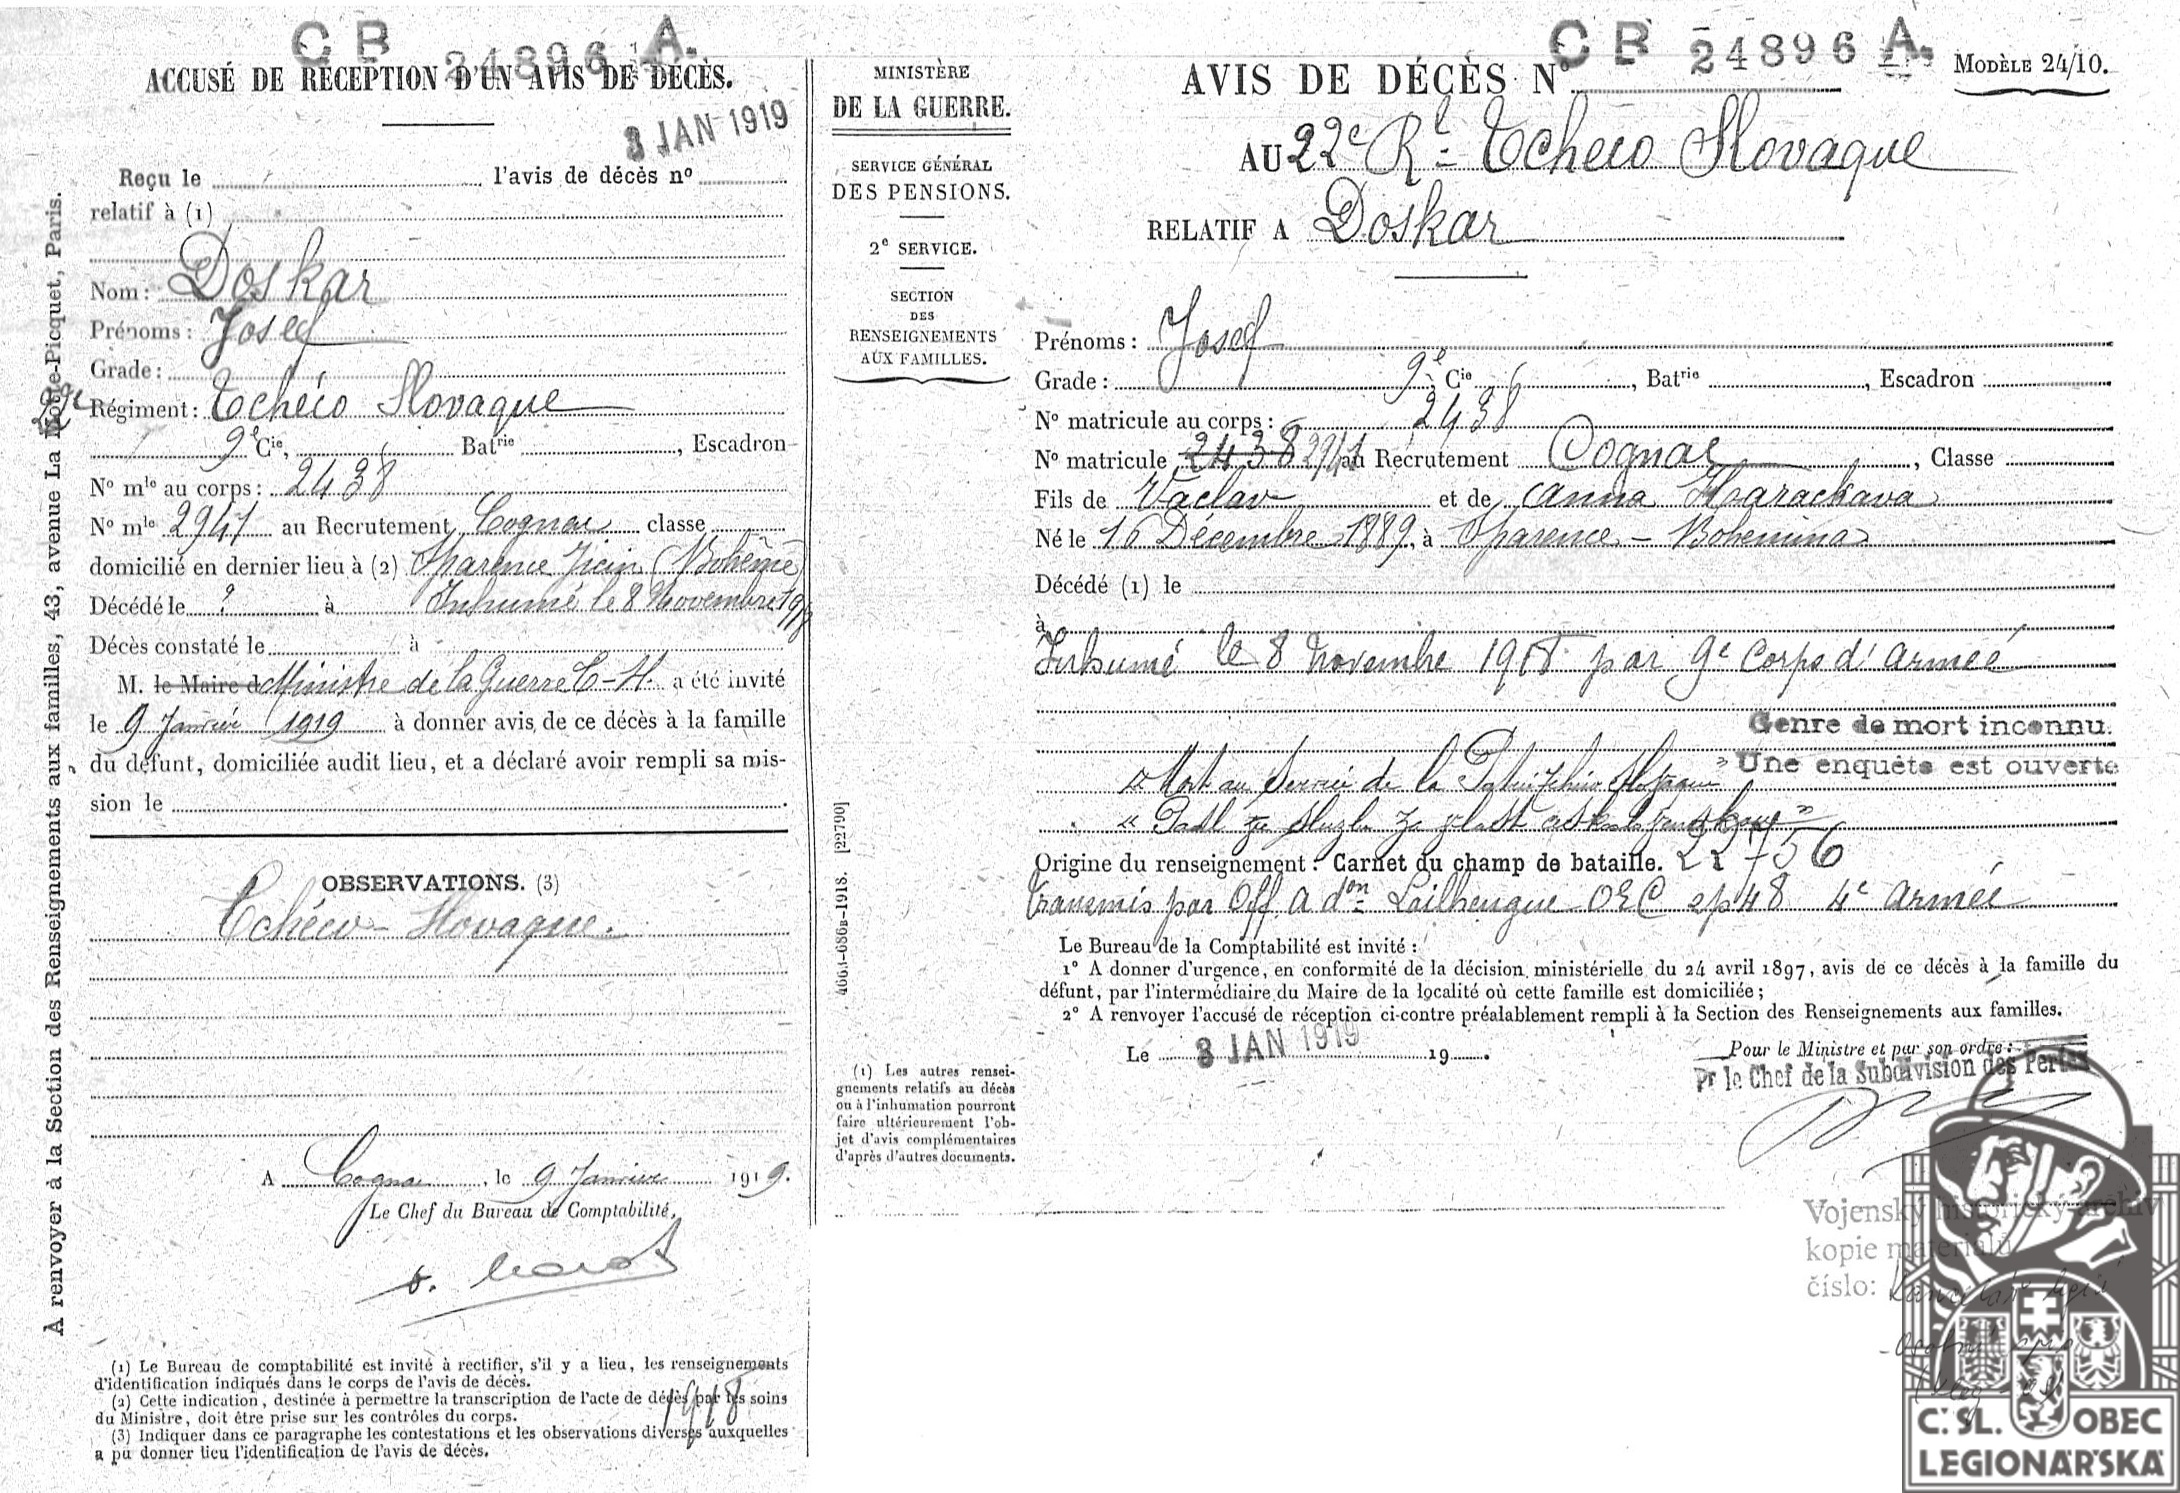 C B 24896 A.
ACCUSÉ DE RÉCEPTION D'UN AVIS DE DÉCÈS.
3 JAN 1919
Reçu le , l'avis de décès nº
relatif à (1)
Nom : Doskar
Prénoms : Josef
Grade :
Régiment : Tchéco Slovaque
9e Cie, Batrie , Escadron
Nº mle au corps : 2438
Nº mle 2941 au Recrutement Cognac classe
domicilié en dernier lieu à (2) Sparence Jicin (Bohême)
Décédé le ? à Inhumé le 8 Novembre 1918
Décès constaté le à
M. le Maire d Ministre de la Guerre C-H. a été invité
le 9 Janvier 1919 à donner avis de ce décès à la famille
du défunt, domiciliée audit lieu, et a déclaré avoir rempli sa mis-
sion le .
OBSERVATIONS. (3)
Tchéco-Slovaque.
A Cognac, le 9 Janvier 1919.
Le Chef du Bureau de Comptabilité,
(1) Le Bureau de comptabilité est invité à rectifier, s'il y a lieu, les renseignements
d'identification indiqués dans le corps de l'avis de décès.
(2) Cette indication, destinée à permettre la transcription de l'acte de décès par les soins
du Ministre, doit être prise sur les contrôles du corps.
(3) Indiquer dans ce paragraphe les contestations et les observations diverses auxquelles
a pu donner lieu l'identification de l'avis de décès.
A renvoyer à la Section des Renseignements aux familles, 43, avenue La Motte-Picquet, Paris.
MINISTÈRE
DE LA GUERRE.
SERVICE GÉNÉRAL
DES PENSIONS.
2e SERVICE.
SECTION
DES
RENSEIGNEMENTS
AUX FAMILLES.
[22790]
(1) Les autres rensei-
gnements relatifs au décès
ou à l'inhumation pourront
faire ultérieurement l'ob-
jet d'avis complémentaires
d'après d'autres documents.
C B 24896 A.
AVIS DE DÉCÈS Nº
MODÈLE 24/10.
AU 22e Rt Tcheco Slovaque
RELATIF A Doskar
Prénoms : Josef
Grade : 9e Cie , Batrie , Escadron
Nº matricule au corps : 2438
Nº matricule 2438 2941 au Recrutement Cognac , Classe
Fils de Vaclav et de Anna Harackava
Né le 16 Décembre 1889, à Sparence - Bohemina
Décédé (1) le
à
Inhumé le 8 Novembre 1918 par 9e Corps d'Armée
Genre de mort inconnu.
Une enquête est ouverte
" Mort au Service de la Patrie Tchéco Slovaque "
Origine du renseignement : Carnet du champ de bataille. 22756
transmis par Off. A don Lailheugue OEC sp 48 4e Armée
Le Bureau de la Comptabilité est invité :
1º A donner d'urgence, en conformité de la décision ministérielle du 24 avril 1897, avis de ce décès à la famille du
défunt, par l'intermédiaire du Maire de la localité où cette famille est domiciliée ;
2º A renvoyer l'accusé de réception ci-contre préalablement rempli à la Section des Renseignements aux familles.
Le 3 JAN 1919 19 .
Pour le Ministre et par son ordre :
Pr le Chef de la Subdivision des Pertes
Vojenský historický archiv
kopie materiálu
číslo:
Č. SL. OBEC
LEGIONÁŘSKÁ